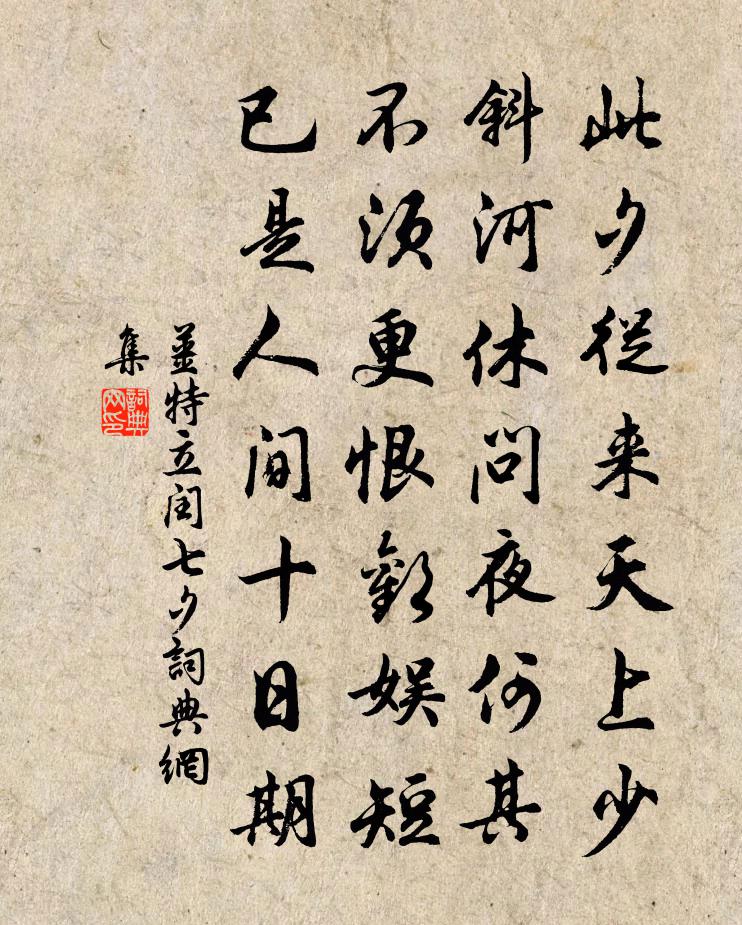 此夕從来天上少
斜河休問夜何其
不須更恨歡娯短
已是人間十日期
姜特立閏七夕詞典網
集
詞典
网印